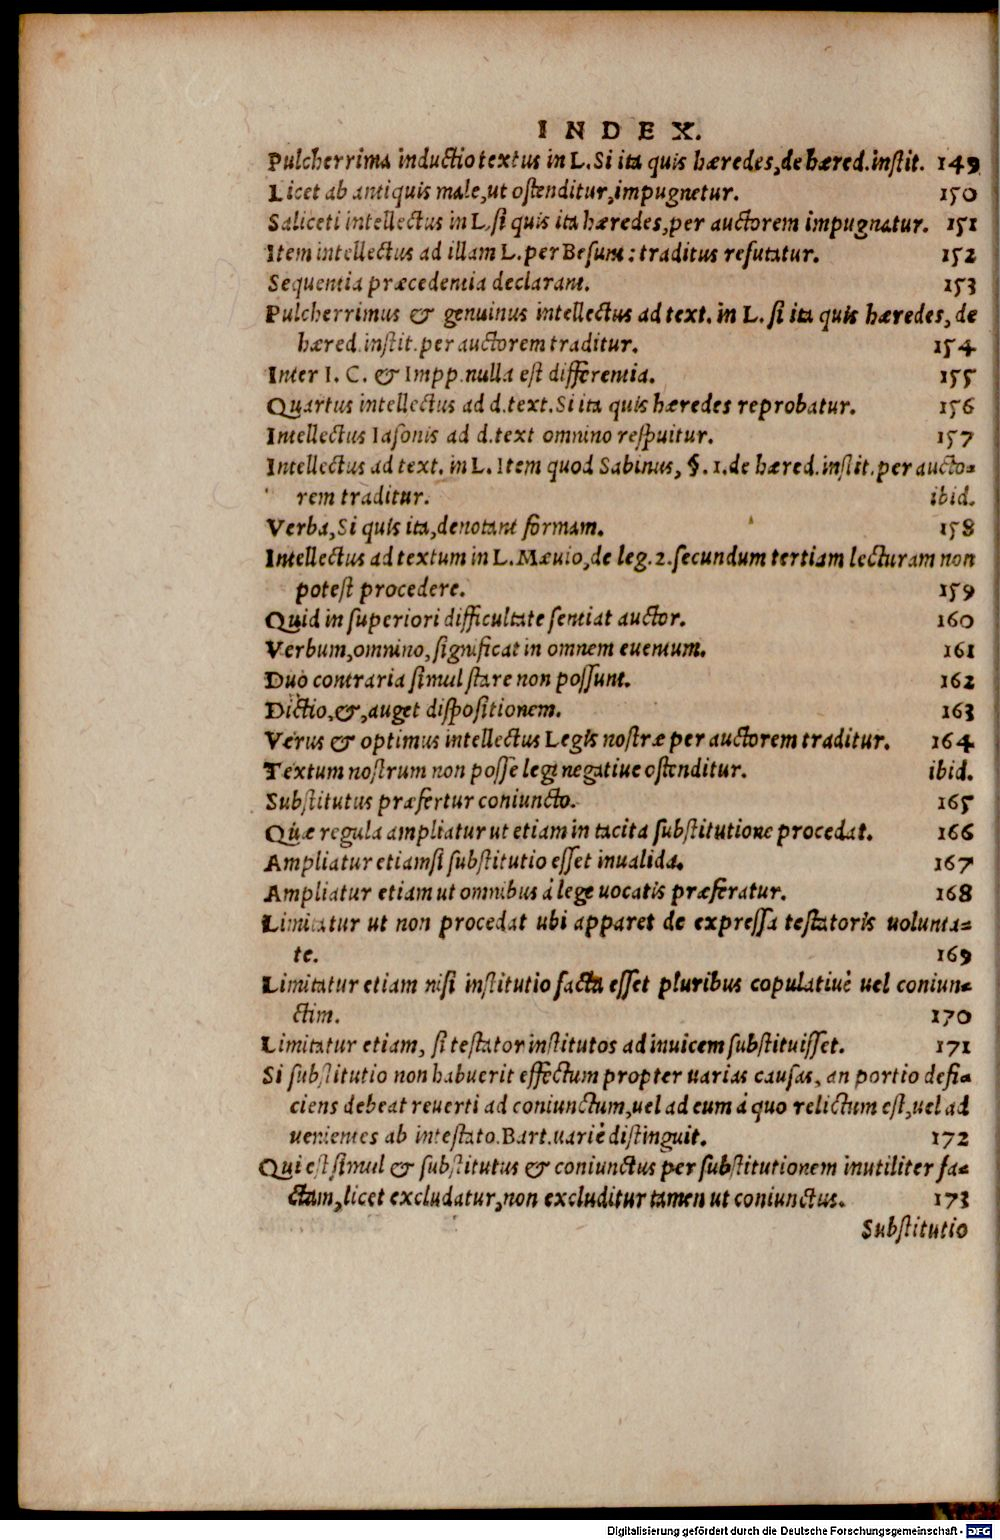 INDEX.
Pulcherrima inductio textus in L. Si ita quis hæredes, de hæred. instit. 149
Licet ab antiquis male, ut ostenditur, impugnetur. 150
Saliceti intellectus in L. si quis ita hæredes, per auctorem impugnatur. 151
Item intellectus ad illam L. per Besum: traditus refutatur. 152
Sequentia præcedentia declarant. 153
Pulcherrimus & genuinus intellectus ad text. in L. si ita quis hæredes, de
hæred. instit. per auctorem traditur. 154
Inter I. C. & Impp. nulla est differentia. 155
Quartus intellectus ad d. text. Si ita quis hæredes reprobatur. 156
Intellectus Iasonis ad d. text omnino respuitur. 157
Intellectus ad text. in L. Item quod Sabinus, §. 1. de hæred. instit. per aucto-
rem traditur. ibid.
Verba, Si quis ita, denotant formam. 158
Intellectus ad textum in L. Mæuio, de leg. 2. secundum tertiam lecturam non
potest procedere. 159
Quid in superiori difficultate sentiat auctor. 160
Verbum, omnino, significat in omnem euentum. 161
Duo contraria simul stare non possunt. 162
Dictio, &, auget dispositionem. 163
Verus & optimus intellectus Legis nostræ per auctorem traditur. 164
Textum nostrum non posse legi negatiue ostenditur. ibid.
Substitutus præfertur coniuncto. 165
Quæ regula ampliatur ut etiam in tacita substitutione procedat. 166
Ampliatur etiamsi substitutio esset inualida. 167
Ampliatur etiam ut omnibus à lege uocatis præferatur. 168
Limitatur ut non procedat ubi apparet de expressa testatoris uolunta-
te. 169
Limitatur etiam nisi institutio facta esset pluribus copulatiuè uel coniun-
ctim. 170
Limitatur etiam, si testator institutos ad inuicem substituisset. 171
Si substitutio non habuerit effectum propter uarias causas, an portio defi-
ciens debeat reuerti ad coniunctum, uel ad eum à quo relictum est, uel ad
uenientes ab intestato. Bart. uariè distinguit. 172
Qui est simul & substitutus & coniunctus per substitutionem inutiliter fa-
ctam, licet excludatur, non excluditur tamen ut coniunctus. 173
Substitutio
Digitalisierung gefördert durch die Deutsche Forschungsgemeinschaft - DFG